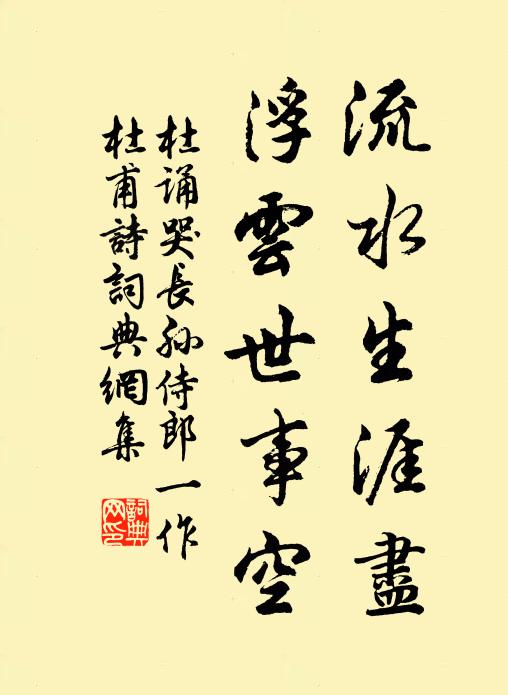 流水生涯盡
浮雲世事空
杜诵哭長孙侍郎一作
杜甫詩詞典網集
詞典
网印